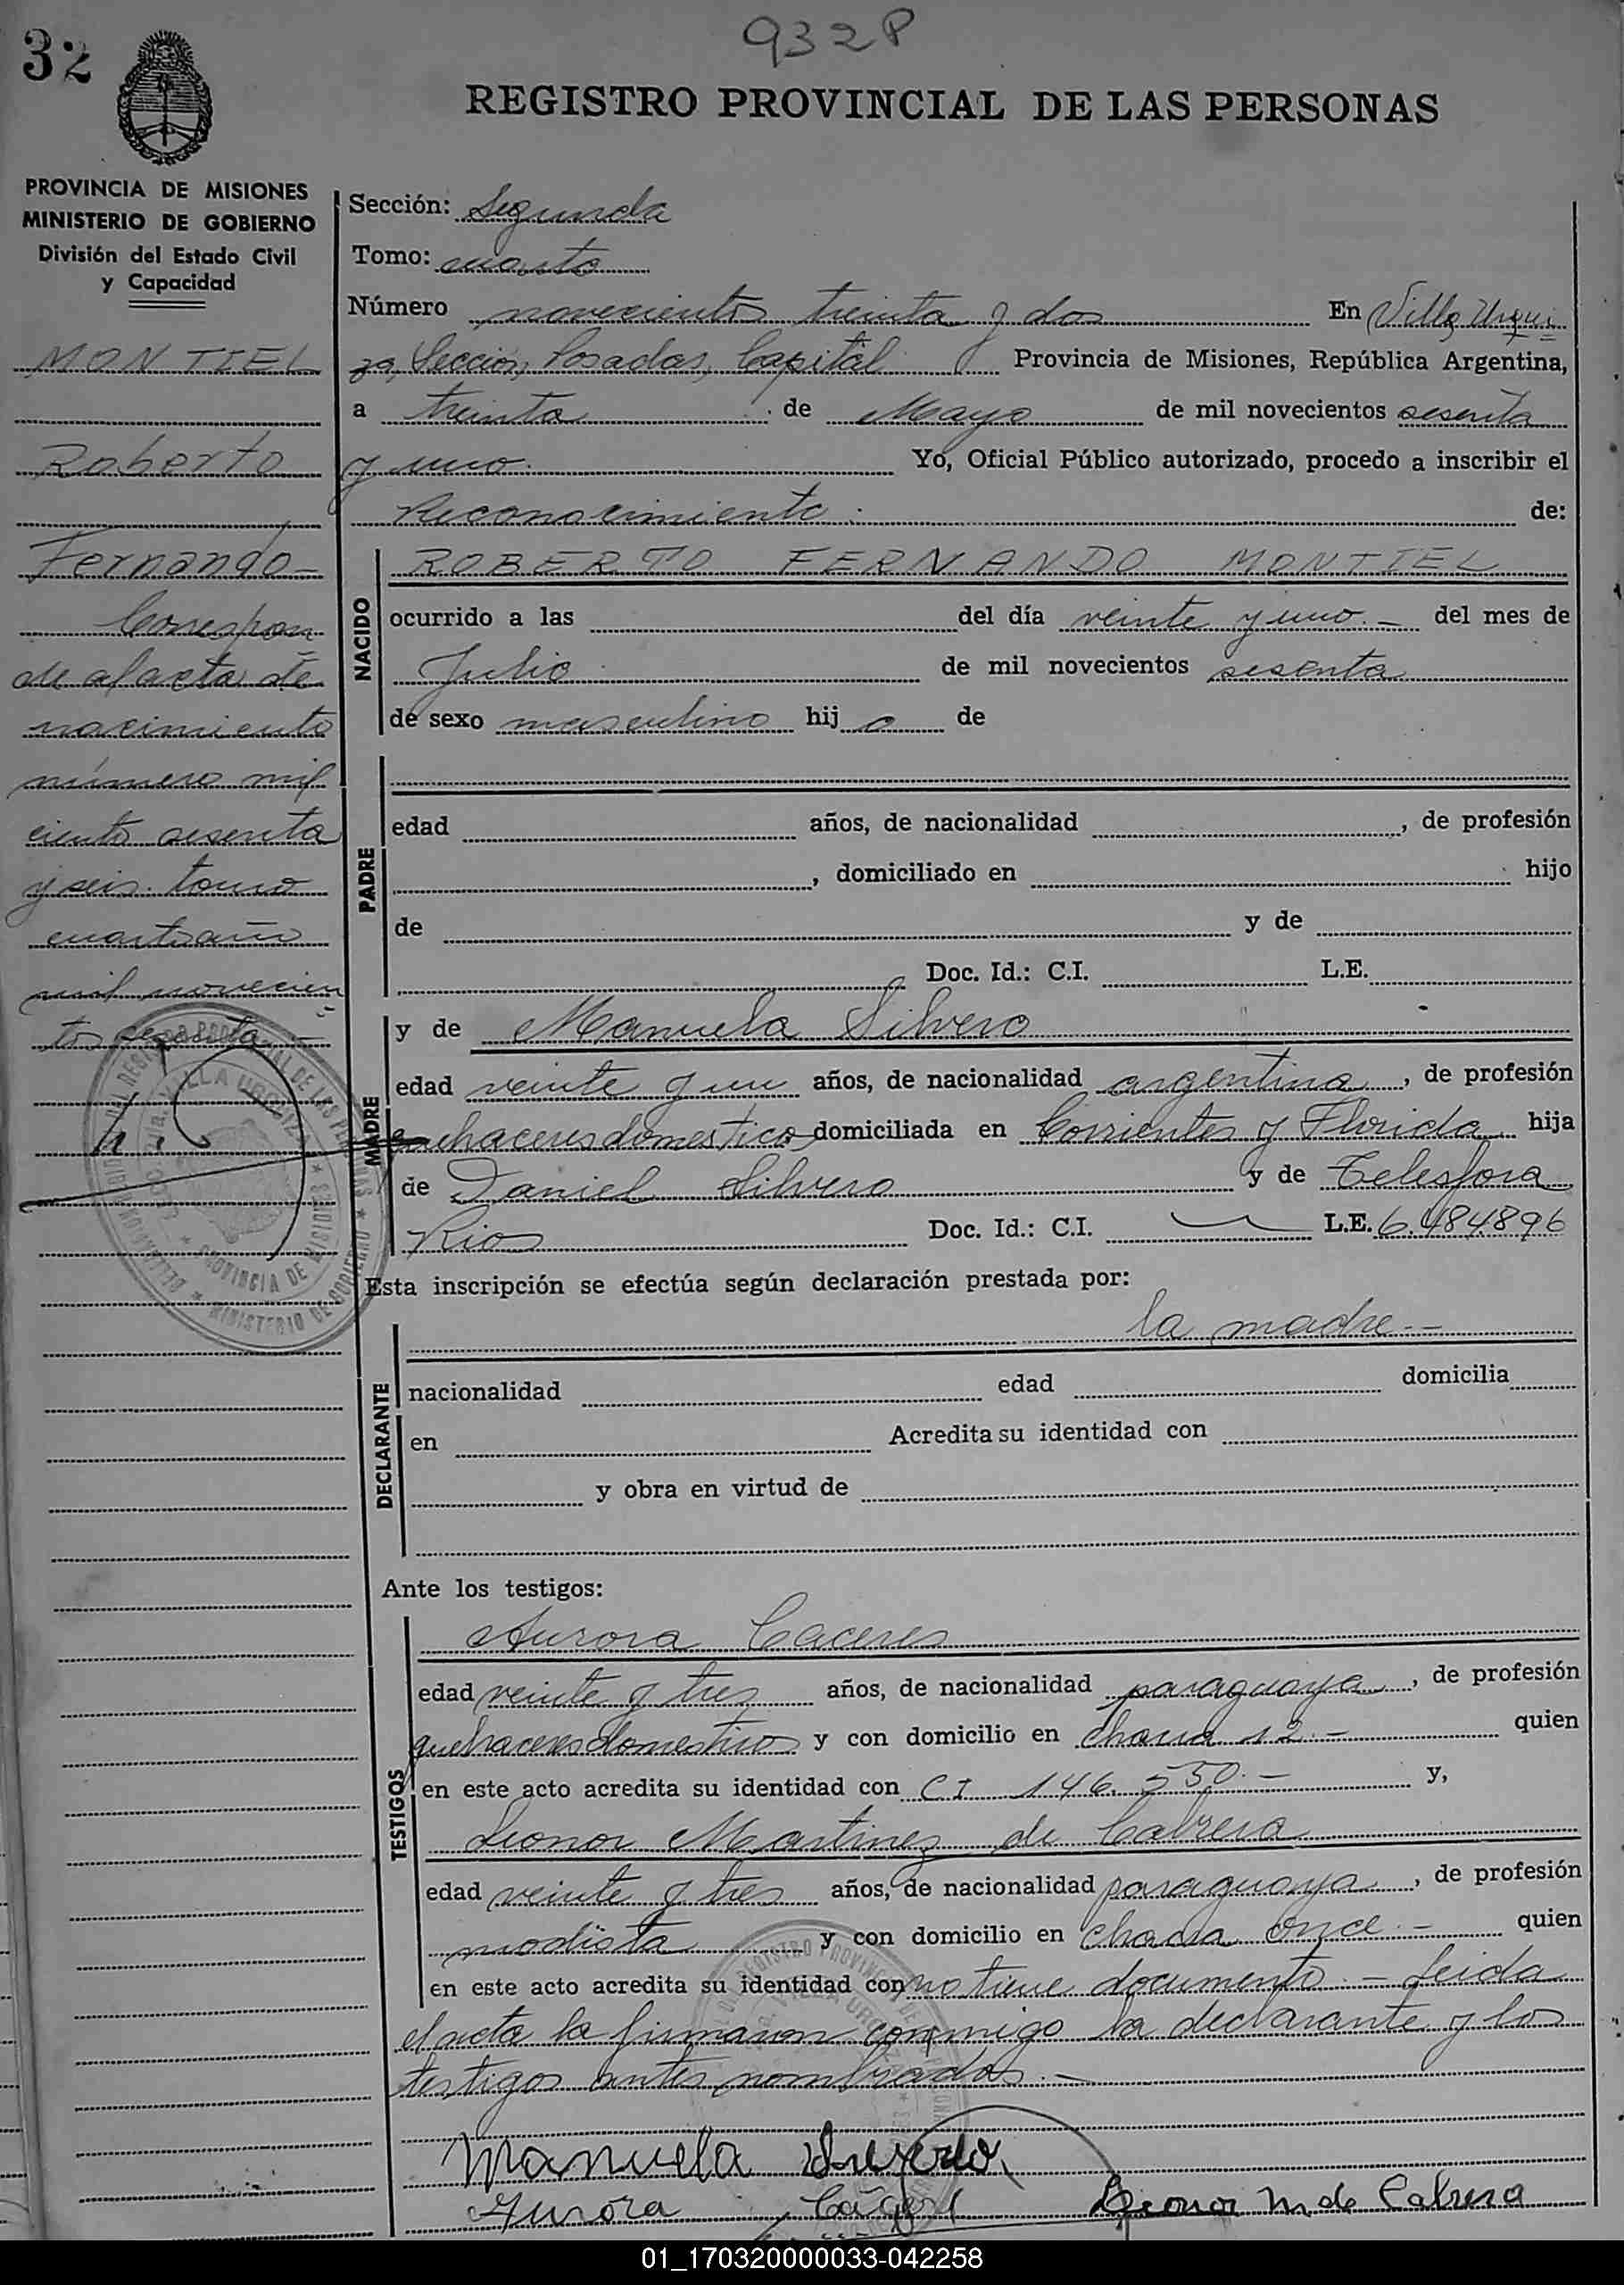 932 P
32
REGISTRO PROVINCIAL DE LAS PERSONAS
PROVINCIA DE MISIONES
MINISTERIO DE GOBIERNO
División del Estado Civil
y Capacidad
MONTIEL
Roberto
Fernando-
Correspon
de al acta de
nacimiento
número mil
ciento sesenta
y seis tomo
cuarto año
mil novecien
tos sesenta
Sección: Segunda
Tomo: cuarto
Número novecientos treinta y dos En Villa Urqui
za, Sección, Posadas, Capital Provincia de Misiones, República Argentina,
a treinta de Mayo de mil novecientos sesenta
y uno. Yo, Oficial Público autorizado, procedo a inscribir el
Reconocimiento: de:
NACIDO
ROBERTO FERNANDO MONTIEL
ocurrido a las del día veinte y uno.- del mes de
Julio de mil novecientos sesenta
de sexo masculino hijo de
PADRE
edad años, de nacionalidad , de profesión
, domiciliado en hijo
de y de
Doc. Id.: C.I. L.E.
MADRE
y de Manuela Silvero
edad veinte y un años, de nacionalidad argentina, de profesión
quehaceres domestico domiciliada en Corrientes y Florida hija
de Daniel Silvero y de Telesfora
Rios Doc. Id.: C.I. L.E. 6.484896
Esta inscripción se efectúa según declaración prestada por:
la madre.-
DECLARANTE
nacionalidad edad domicilia
en Acredita su identidad con
y obra en virtud de
Ante los testigos:
TESTIGOS
Aurora Caceres
edad veinte y tres años, de nacionalidad paraguaya, de profesión
quehaceres domestico y con domicilio en chacra 12.- quien
en este acto acredita su identidad con CI 146.550.- y,
Leonor Martinez de Cabrera
edad veinte y tres años, de nacionalidad paraguaya, de profesión
modista y con domicilio en chacra once.- quien
en este acto acredita su identidad con no tiene documento.- Leida
el acta la firmaron conmigo la declarante y los
testigos antes nombrados.-
Manuela Silvero
Aurora Cáceres Leonor M de Cabrera
01_170320000033-042258